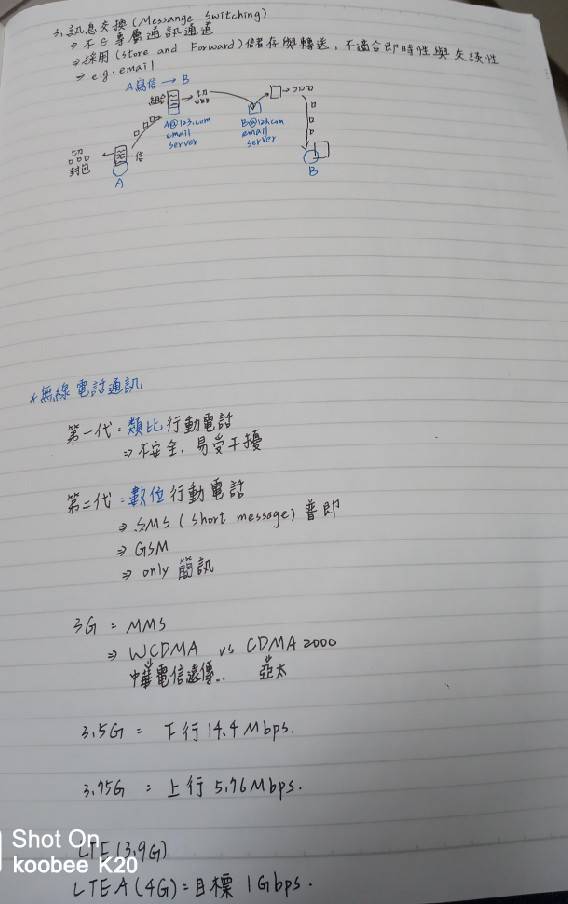 3. 訊息交換(Message Switching)
→ 不占專屬通訊通道
⇒ 採用(Store and Forward)儲存與轉送，不適合即時性與交談性
⇒ e.g. email
A寫信 → B
組合
切
A@123.com
email
server
B@12h.com
email
server
切
封包
信
A
B
無線電話通訊
第一代：類比行動電話
⇒ 不安全，易受干擾
第二代：數位行動電話
⇒ SMS (short message) 普即
⇒ GSM
⇒ only 簡訊
3G = MMS
⇒ WCDMA vs CDMA 2000
中華電信遠傳.. 亞太
3.5G = 下行 14.4 Mbps.
3.75G = 上行 5.76 Mbps.
LTE (3.9G)
LTE A (4G) = 目標 1Gbps.
Shot On
koobee K20